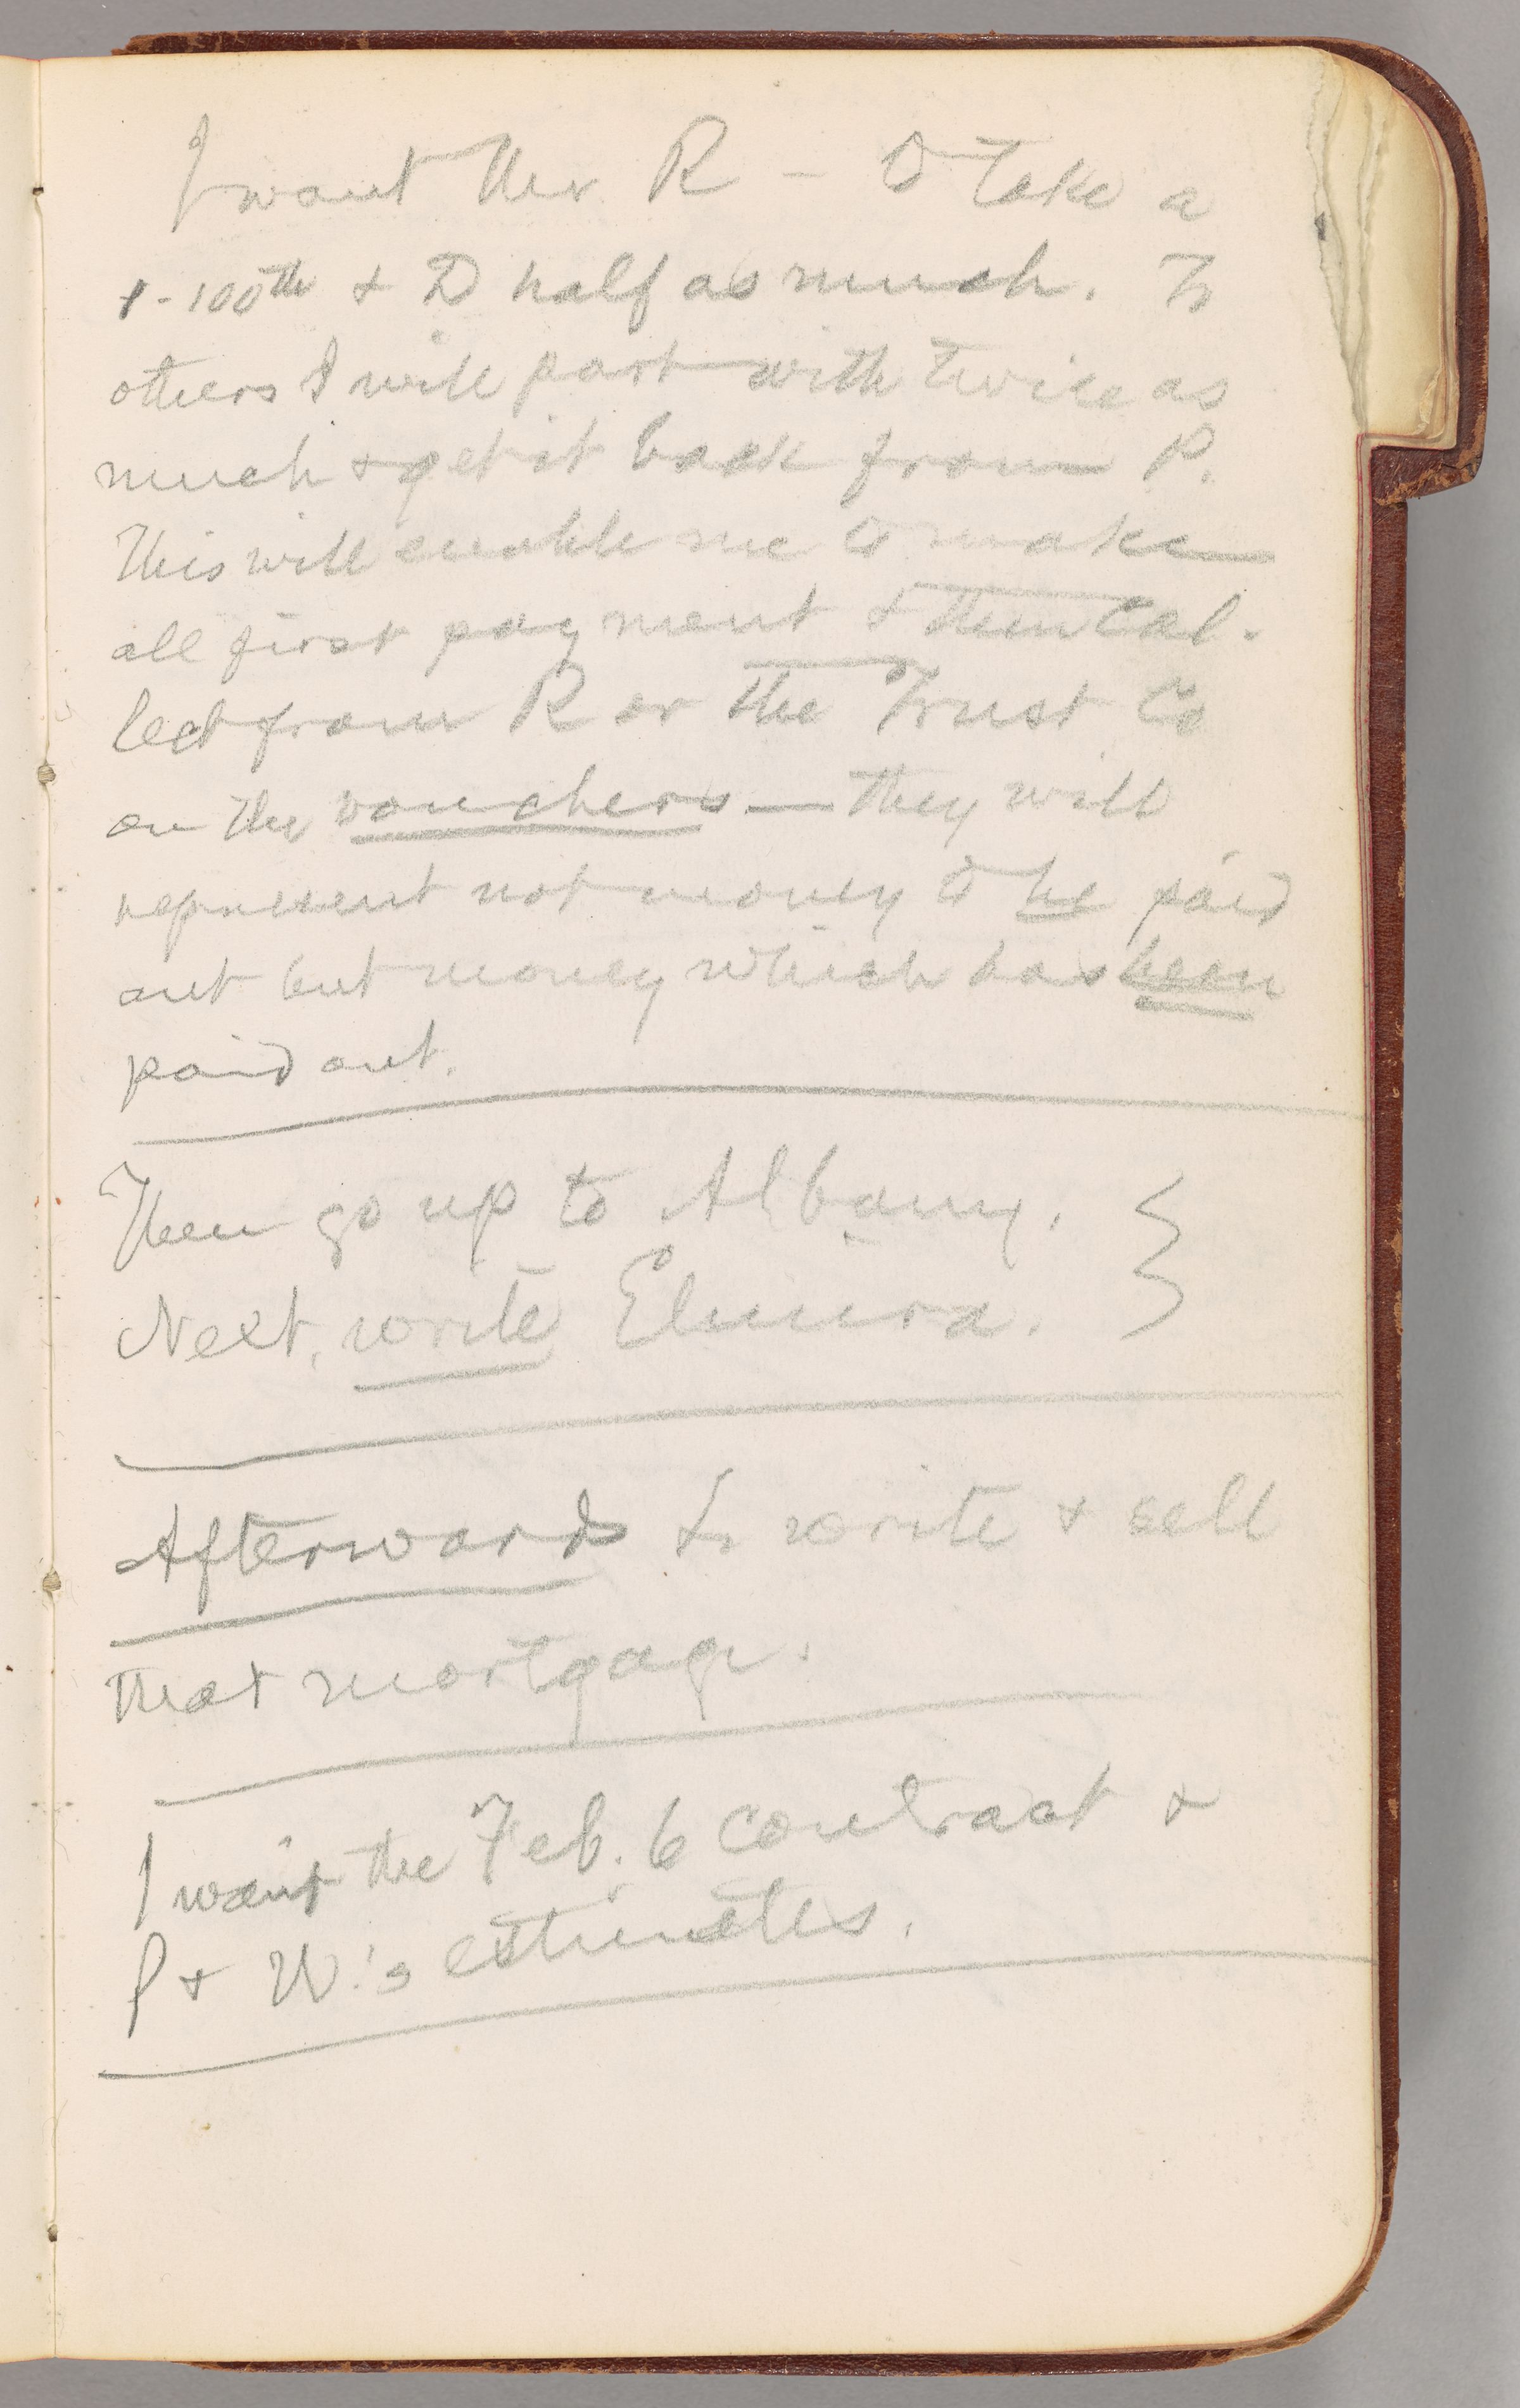 I want the R — to take a
1-100th & D half as much. To
others I will part with twice as
much & get it back from P.
This will enable me to make
all first payment & then col-
lect from R or the Trust Co
on the vouchers — they will
represent not money to be paid
out but money which has been
paid out.
Then go up to Albany.
Next, write Elmira.
Afterward to write & sell
that mortgage.
I want the Feb. 6 contract &
P & W.'s estimates.